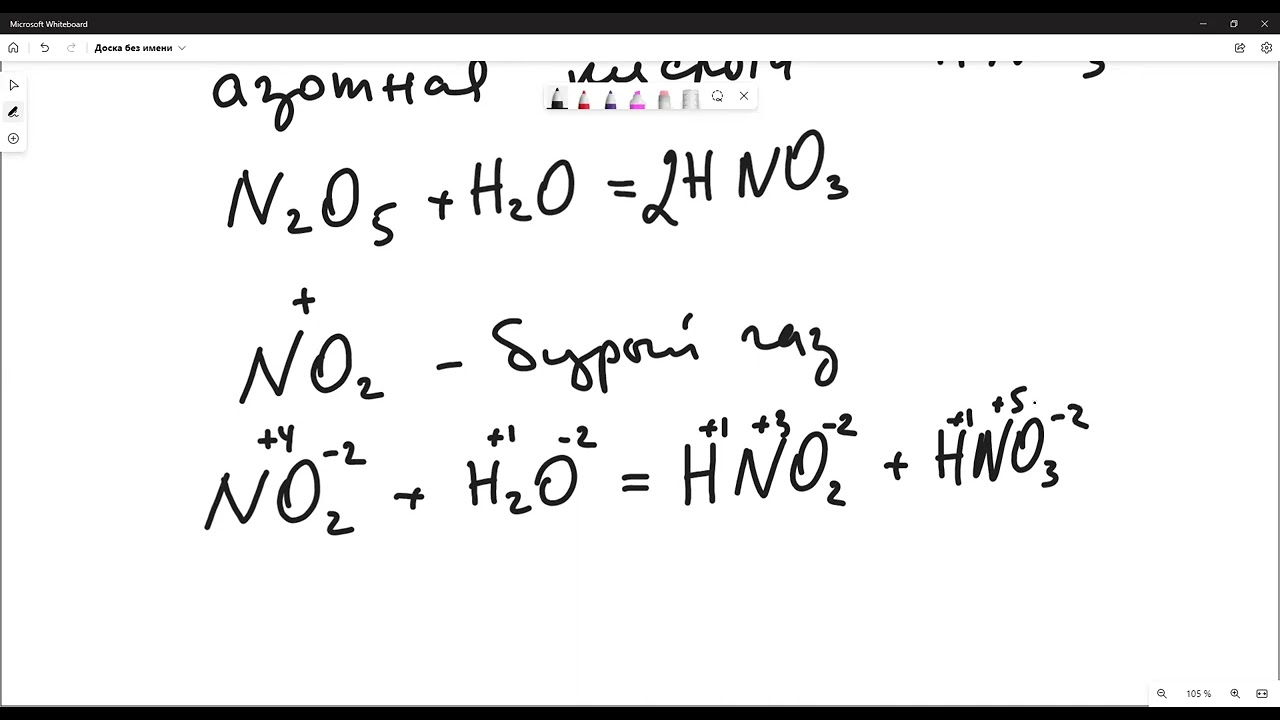 Microsoft Whiteboard
Доска без имени
азотная
N₂O₅ + H₂O = 2HNO₃
+
NO₂ - бурый газ
+4 -2 +1 -2 +1 +3 -2 +1 +5 -2
NO₂ + H₂O = HNO₂ + HNO₃
105 %